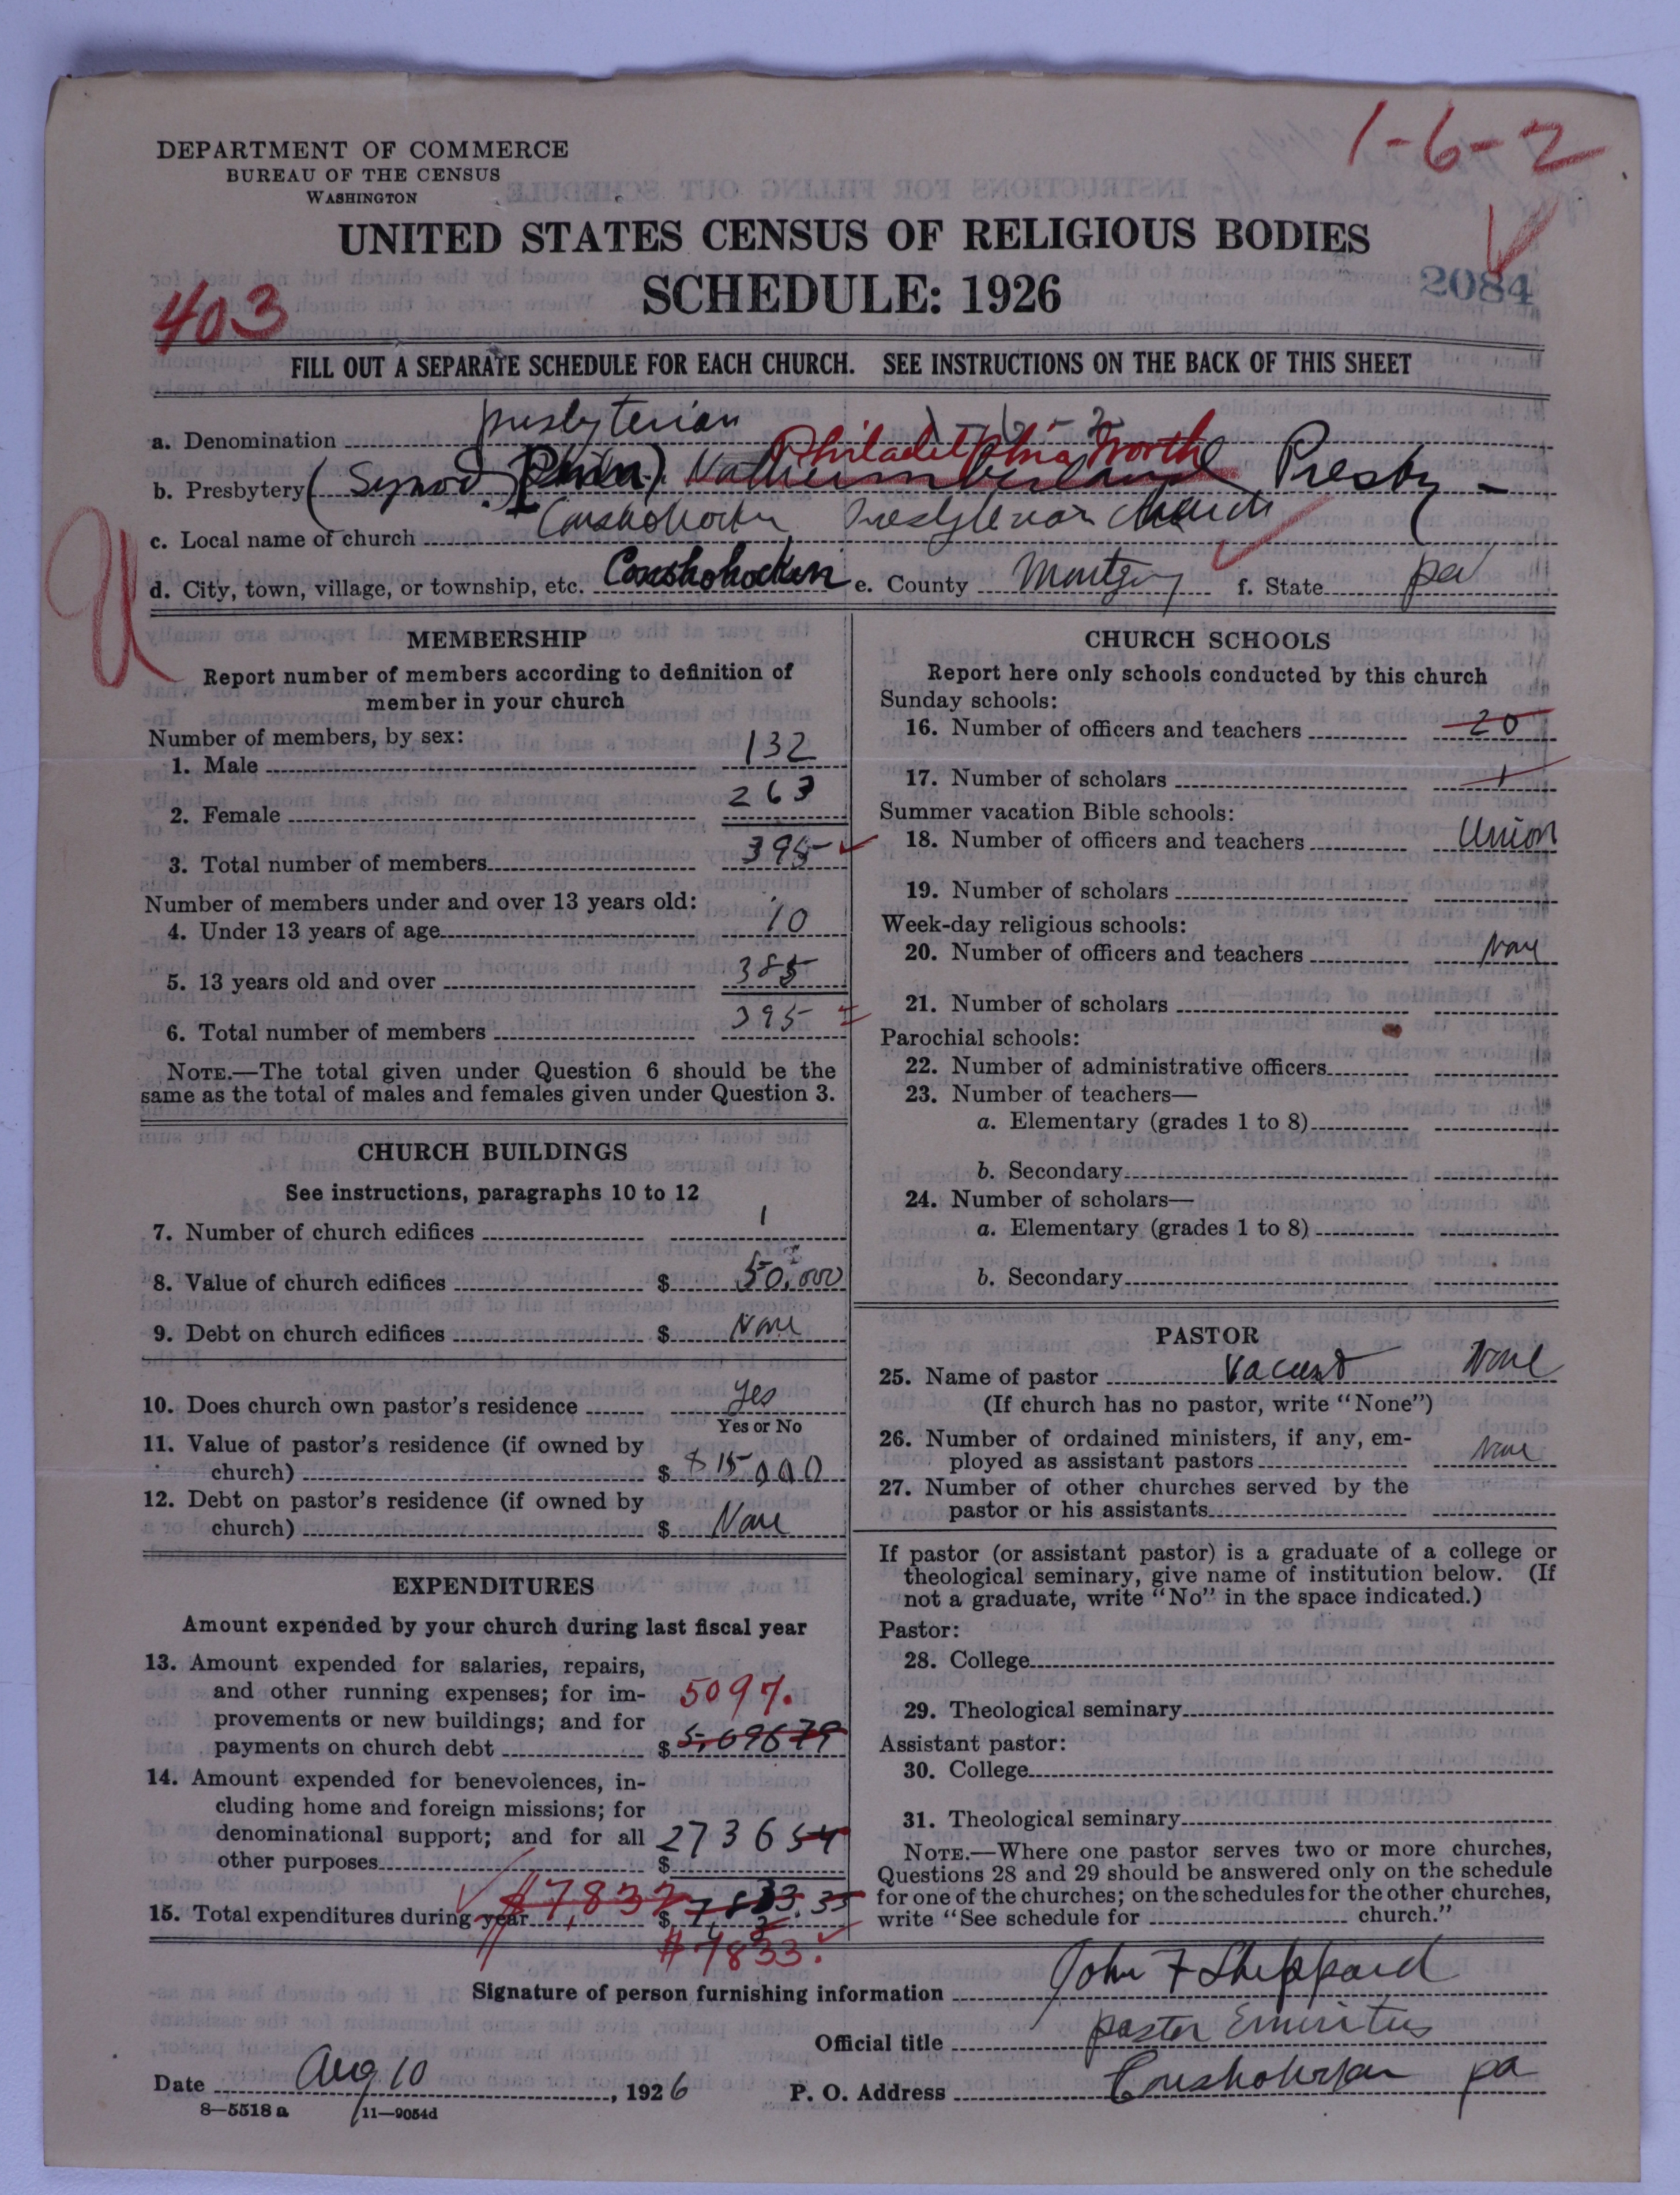 1-6-2
DEPARTMENT OF COMMERCE
BUREAU OF THE CENSUS
WASHINGTON
UNITED STATES CENSUS OF RELIGIOUS BODIES
SCHEDULE: 1926
2084
403
FILL OUT A SEPARATE SCHEDULE FOR EACH CHURCH. SEE INSTRUCTIONS ON THE BACK OF THIS SHEET
a. Denomination Presbyterian 1-6-2
Philadelphia North
b. Presbytery (Synod. Penn). Presby-
c. Local name of church Conshohocken Presbyterian Church
d. City, town, village, or township, etc. Conshohocken e. County Montgy f. State pa
MEMBERSHIP
Report number of members according to definition of
member in your church
Number of members, by sex:
1. Male 132
2. Female 263
3. Total number of members 395
Number of members under and over 13 years old:
4. Under 13 years of age 10
5. 13 years old and over 385
6. Total number of members 395
NOTE.—The total given under Question 6 should be the
same as the total of males and females given under Question 3.
CHURCH BUILDINGS
See instructions, paragraphs 10 to 12
7. Number of church edifices 1
8. Value of church edifices $ 50,000
9. Debt on church edifices $ None
10. Does church own pastor's residence yes
Yes or No
11. Value of pastor's residence (if owned by
church) $ $15,000
12. Debt on pastor's residence (if owned by
church) $ None
EXPENDITURES
Amount expended by your church during last fiscal year
13. Amount expended for salaries, repairs,
and other running expenses; for im-
5097.
provements or new buildings; and for
payments on church debt $ 5,096 79
14. Amount expended for benevolences, in-
cluding home and foreign missions; for
denominational support; and for all 2736 54
other purposes $
$7,837
15. Total expenditures during year $ 7,833.33
$7833.
CHURCH SCHOOLS
Report here only schools conducted by this church
Sunday schools:
16. Number of officers and teachers 20
17. Number of scholars
Summer vacation Bible schools:
18. Number of officers and teachers Union
19. Number of scholars
Week-day religious schools:
20. Number of officers and teachers None
21. Number of scholars
Parochial schools:
22. Number of administrative officers
23. Number of teachers—
a. Elementary (grades 1 to 8)
b. Secondary
24. Number of scholars—
a. Elementary (grades 1 to 8)
b. Secondary
PASTOR
25. Name of pastor Vacant None
(If church has no pastor, write "None")
26. Number of ordained ministers, if any, em-
ployed as assistant pastors None
27. Number of other churches served by the
pastor or his assistants
If pastor (or assistant pastor) is a graduate of a college or
theological seminary, give name of institution below. (If
not a graduate, write "No" in the space indicated.)
Pastor:
28. College
29. Theological seminary
Assistant pastor:
30. College
31. Theological seminary
NOTE.—Where one pastor serves two or more churches,
Questions 28 and 29 should be answered only on the schedule
for one of the churches; on the schedules for the other churches,
write "See schedule for church."
Signature of person furnishing information John F Sheppard
Official title pastor Emiritus
Date Aug 10, 1926 P. O. Address Conshohocken pa
8—5518 a 11—9054d